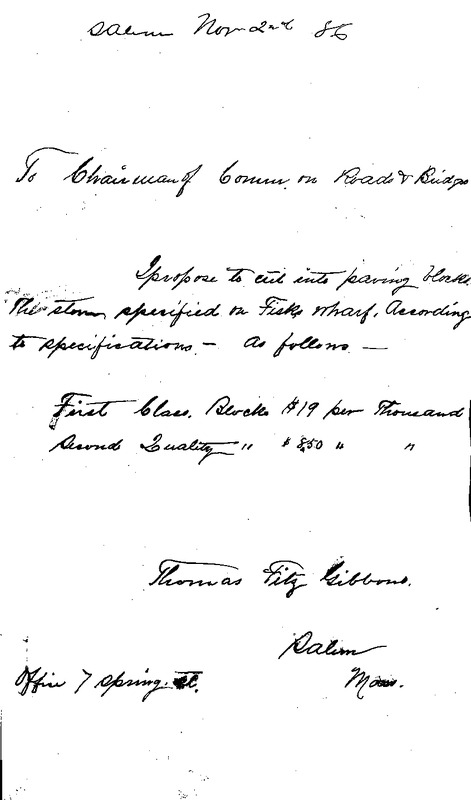 Salem Nov 2nd 86
To Chairman of Comm. on Roads & Bridges
I propose to cut into paving blocks
the stone specified on Fisks wharf. According
to specifications — as follows —
First Class. Blocks $19 per Thousand
Second Quality " $8.50 " "
Thomas Fitz Gibbons.
Salem
Office 7 Spring St. Mass.